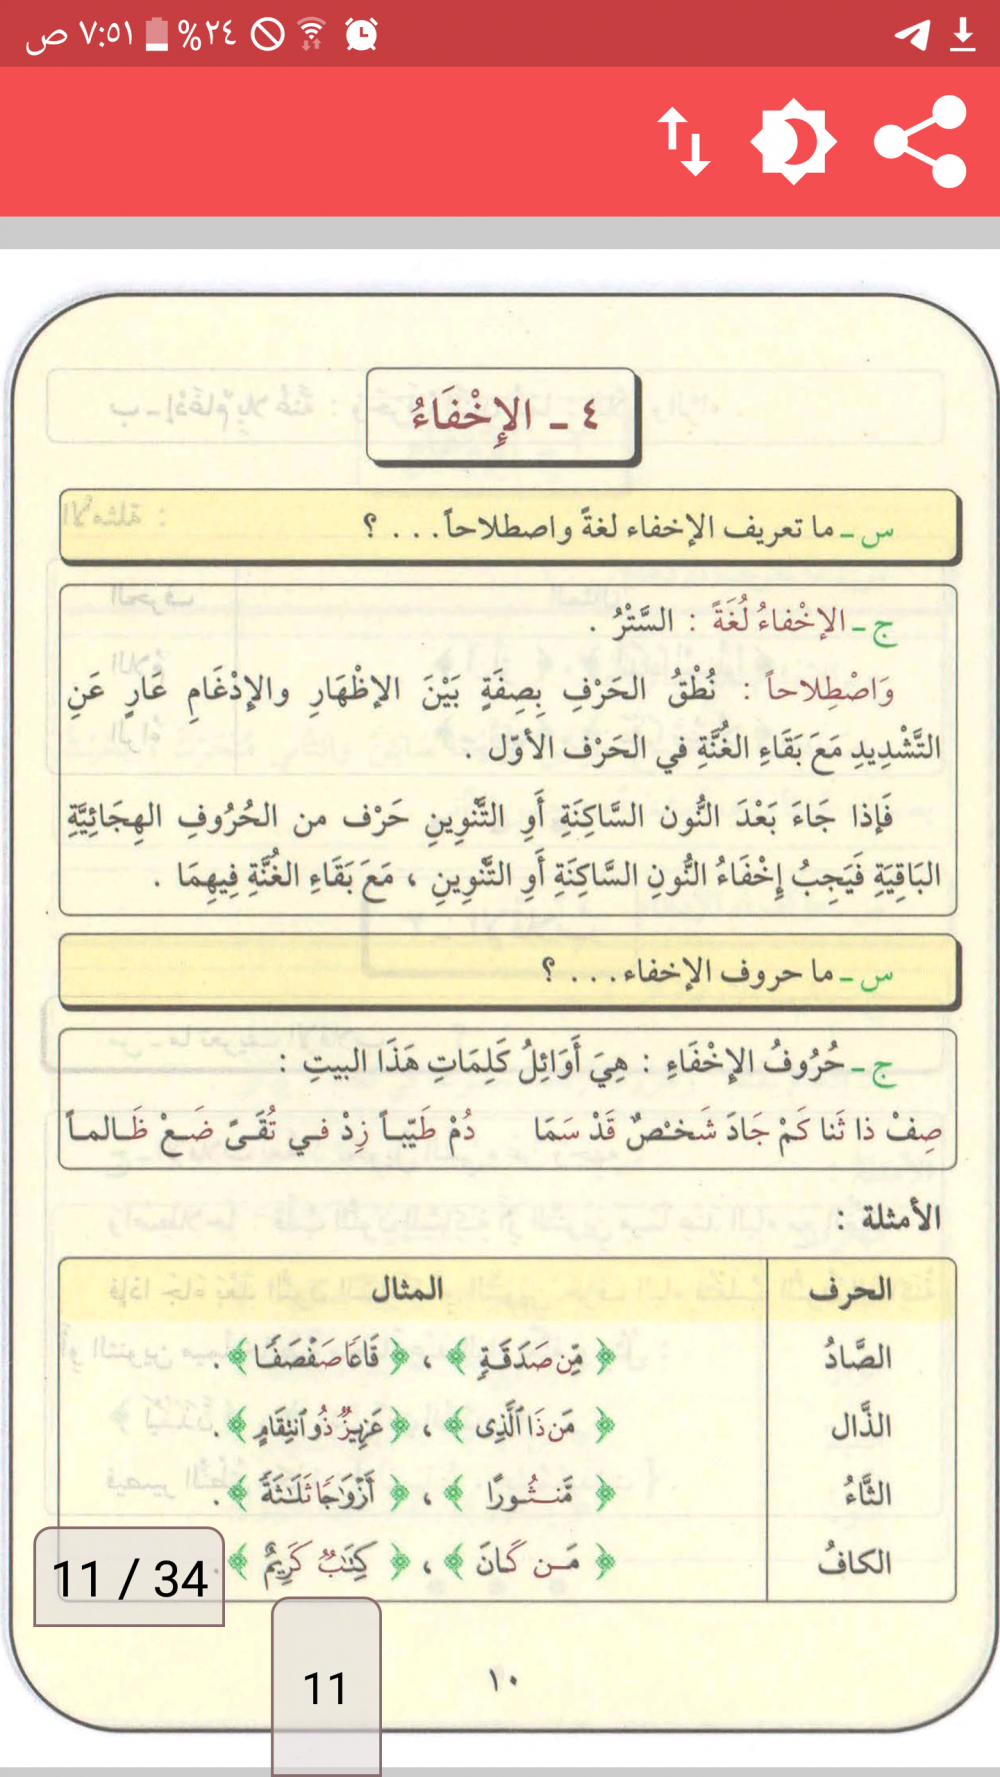 ٧:٥١ ص ٢٤%
٤ ـ الإِخْفَاءُ
س ـ ما تعريف الإخفاء لغةً واصطلاحاً . . . ؟
ج ـ الإخْفاءُ لُغَةً : السَّتْرُ .
وَاصْطِلاحاً : نُطْقُ الحَرْفِ بِصِفَةٍ بَيْنَ الإظْهَارِ والإدْغَامِ عَارٍ عَنِ
التَّشْدِيدِ مَعَ بَقَاءِ الغُنَّةِ في الحَرْفِ الأوّل .
فَإذا جَاءَ بَعْدَ النُّون السَّاكِنَةِ أَوِ التَّنْوِينِ حَرْف من الحُرُوفِ الهِجَائِيَّةِ
البَاقِيَةِ فَيَجِبُ إخْفَاءُ النُّونِ السَّاكِنَةِ أَوِ التَّنْوِينِ ، مَعَ بَقَاءِ الغُنَّةِ فِيهِمَا .
س ـ ما حروف الإخفاء . . . ؟
ج ـ حُرُوفُ الإخْفَاءِ : هِيَ أَوَائِلُ كَلِمَاتِ هَذَا البيتِ :
صِفْ ذا ثَنا كَمْ جَادَ شَخْصٌ قَدْ سَمَا دُمْ طَيّباً زِدْ في تُقَىً ضَعْ ظَالماً
الأمثلة :
الحرف المثال
الصَّادُ ﴿ مِّن صَدَقَةٍ ﴾ ، ﴿ قَاعًا صَفْصَفًا ﴾ .
الذَّال ﴿ مَن ذَا ٱلَّذِى ﴾ ، ﴿ عَزِيزٌ ذُو ٱنتِقَامٍ ﴾ .
الثَّاءُ ﴿ مَّنثُورًا ﴾ ، ﴿ أَزْوَٰجًا ثَلَـٰثَةً ﴾ .
الكافُ ﴿ مَـن كَـانَ ﴾ ، ﴿ كِتَـٰبٌ كَرِيمٌ ﴾ .
11 / 34
١٠
11